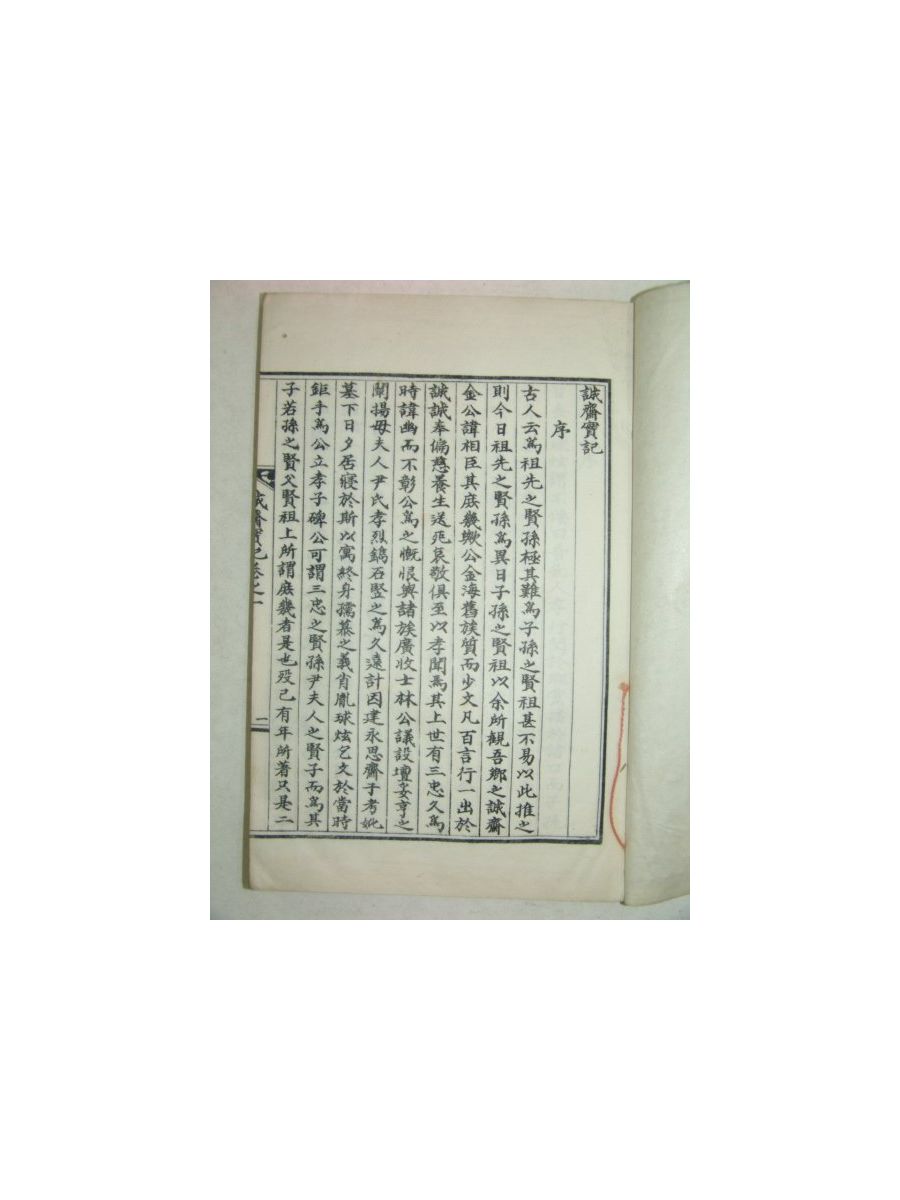 誠齋實記
序
古人云爲祖先之賢孫極其難爲子孫之賢祖甚不易以此推之
則今日祖先之賢孫爲異日子孫之賢祖以余所觀吾鄕之誠齋
金公諱相臣其庶幾歟公金海舊族質而少文凡百言行一出於
誠誠奉偏慈養生送死哀敬俱至以孝聞焉其上世有三忠久爲
時諱幽而不彰公爲之慨恨與諸族廣收士林公議設壇妥享之
闡揚毋夫人尹氏孝烈鐫石竪之爲久遠計因建永思齋于考妣
墓下日夕居寢於斯以寓終身孺慕之義肖胤球炫乞文於當時
鉅手爲公立孝子碑公可謂三忠之賢孫尹夫人之賢子而爲其
子若孫之賢父賢祖上所謂庶幾者是也歿已有年所著只是二
誠齋實記卷之一
一